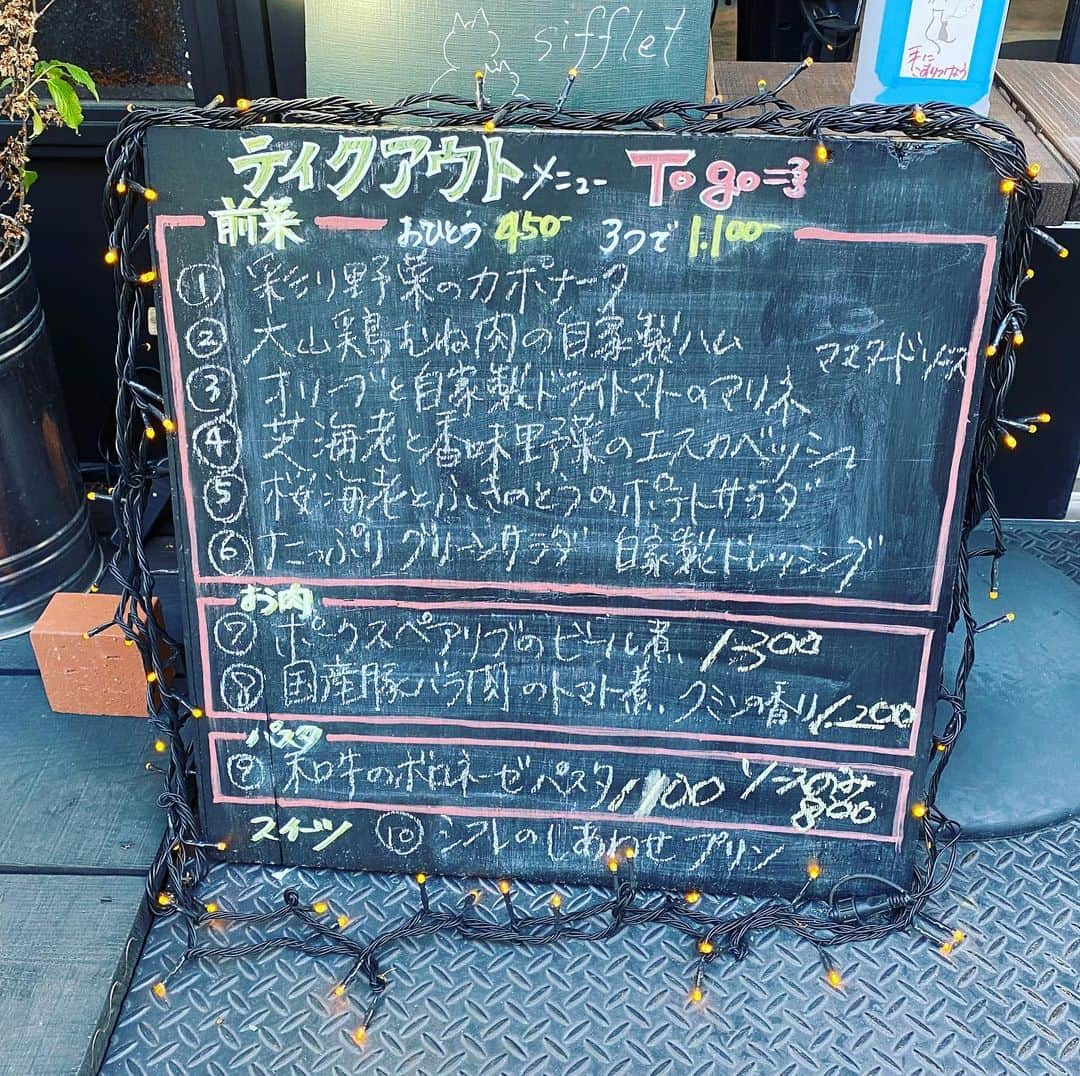 sifflet
手に
こすりつけよう
ティクアウトメニュー To go
前菜 おひとつ 450 3つで 1.100
① 彩り野菜のカポナータ
② 大山鶏むね肉の自家製ハム マスタードソース
③ オリーブと自家製ドライトマトのマリネ
④ 芝海老と香味野菜のエスカベッシュ
⑤ 桜海老とふきのとうのポテトサラダ
⑥ たっぷりグリーンサラダ 自家製ドレッシング
お肉
⑦ ポークスペアリブのビール煮、1300
⑧ 国産豚バラ肉のトマト煮、クミンの香り 1.200
パスタ
⑨ 和牛のボロネーゼパスタ 1100 ソースのみ
800
スイーツ ⑩ シフレのしあわせプリン